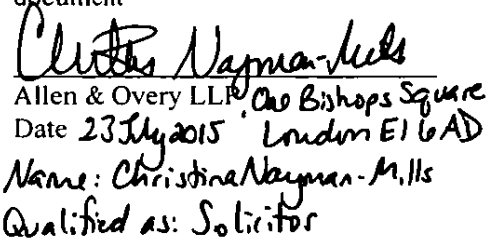 document
Christina Nayman-Mills
Allen & Overy LLP One Bishops Square
Date 23 July 2015 London E1 6AD
Name: Christina Nayman-Mills
Qualified as: Solicitor